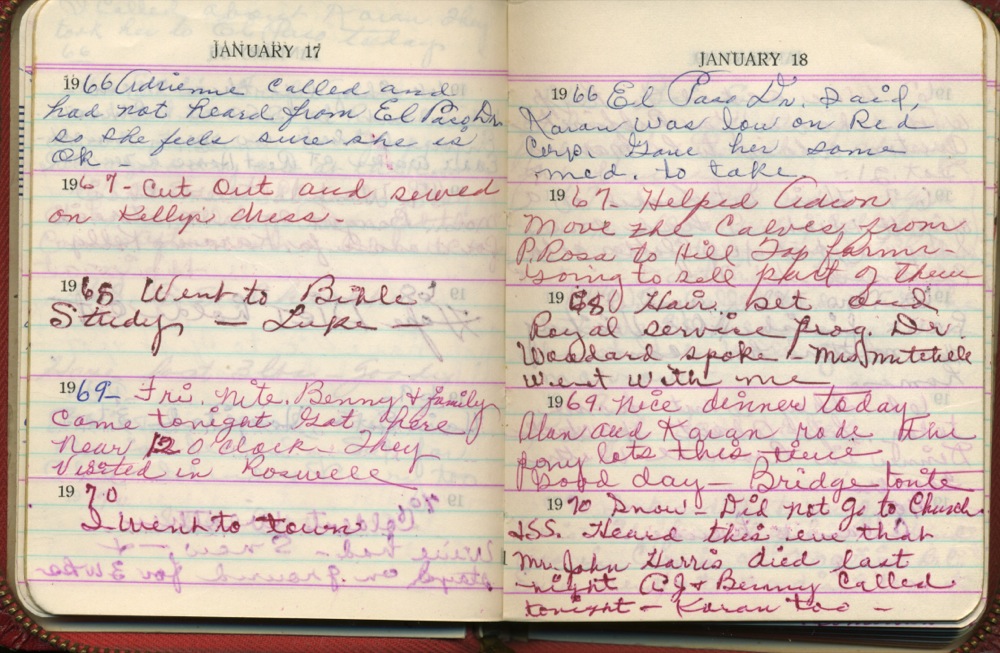 JANUARY 17
1966 Adrienne called and
had not heard from El Paso Dr.
so she feels sure she is
OK
1967- Cut out and sewed
on Kelly's dress-
1968 Went to Bible
Study - Luke -
1969- Fri. nite. Benny & family
came tonight Got here
near 12 O clock They
visited in Roswell
1970
I went to town
JANUARY 18
1966 El Paso Dr. said,
Karan was low on Red
Corp. Gave her some
med. to take
1967- Helped
Move the Calves from
P. Ross to Hill Top farm-
going to sell part of them
1968 Hair set and
Royal service prog. Dr
Woodard spoke - Mrs Mitchell
went with me
1969. Nice dinner today
Alan and Karan rode the
pony lots this time
Good day - Bridge tonite
1970 Snow - Did not go to Church
&SS. Heard this eve that
Mr. John Harris died last
night & Benny called
tonight - Karan too -